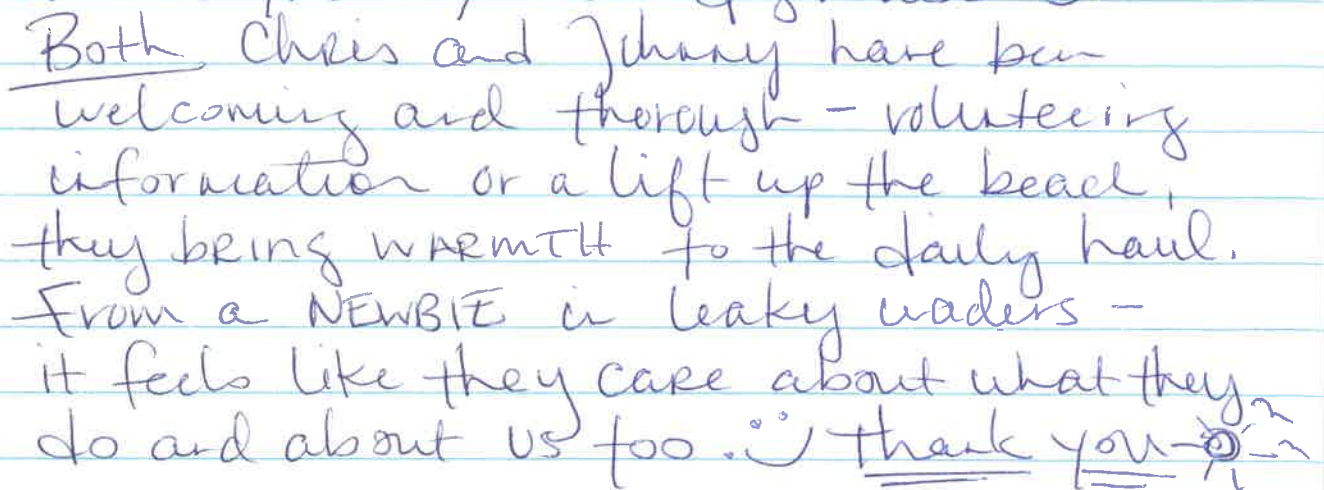 Both Chris and Johnny have been
welcoming and thorough - volunteering
information or a lift up the beach,
they bring WARMTH to the daily haul.
From a NEWBIE in leaky waders -
it feels like they care about what they
do and about us too. :) thank you